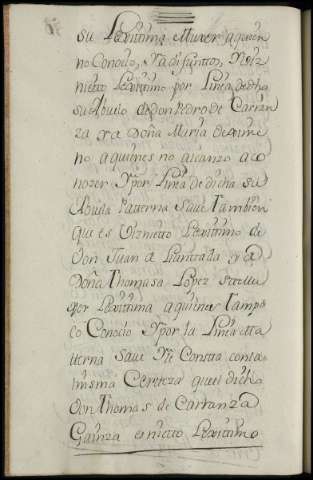 su Lexitima Muxer a quien
no Conocio, Ya difuntos, Y viz
nietto Lexitimo por Linea de dha
su Abuelo de Don Pedro de Carran
za Y a Doña Maria de
no a quienes no alcanzo a co
nozer Y por Linea de dicha su
Abuela Patterna Save Tambien
que es Viznietto Lexitimo de
Don Juan de Y de
Doña Thomasa Lopez
xer Lexitima a quienes Tampo
co Conocio Y por la Linea Ma
tterna Save Y le Consta con la
misma Certteza que el dicho
Don Thomas de Carranza
Gainza es nietto Lexitimo